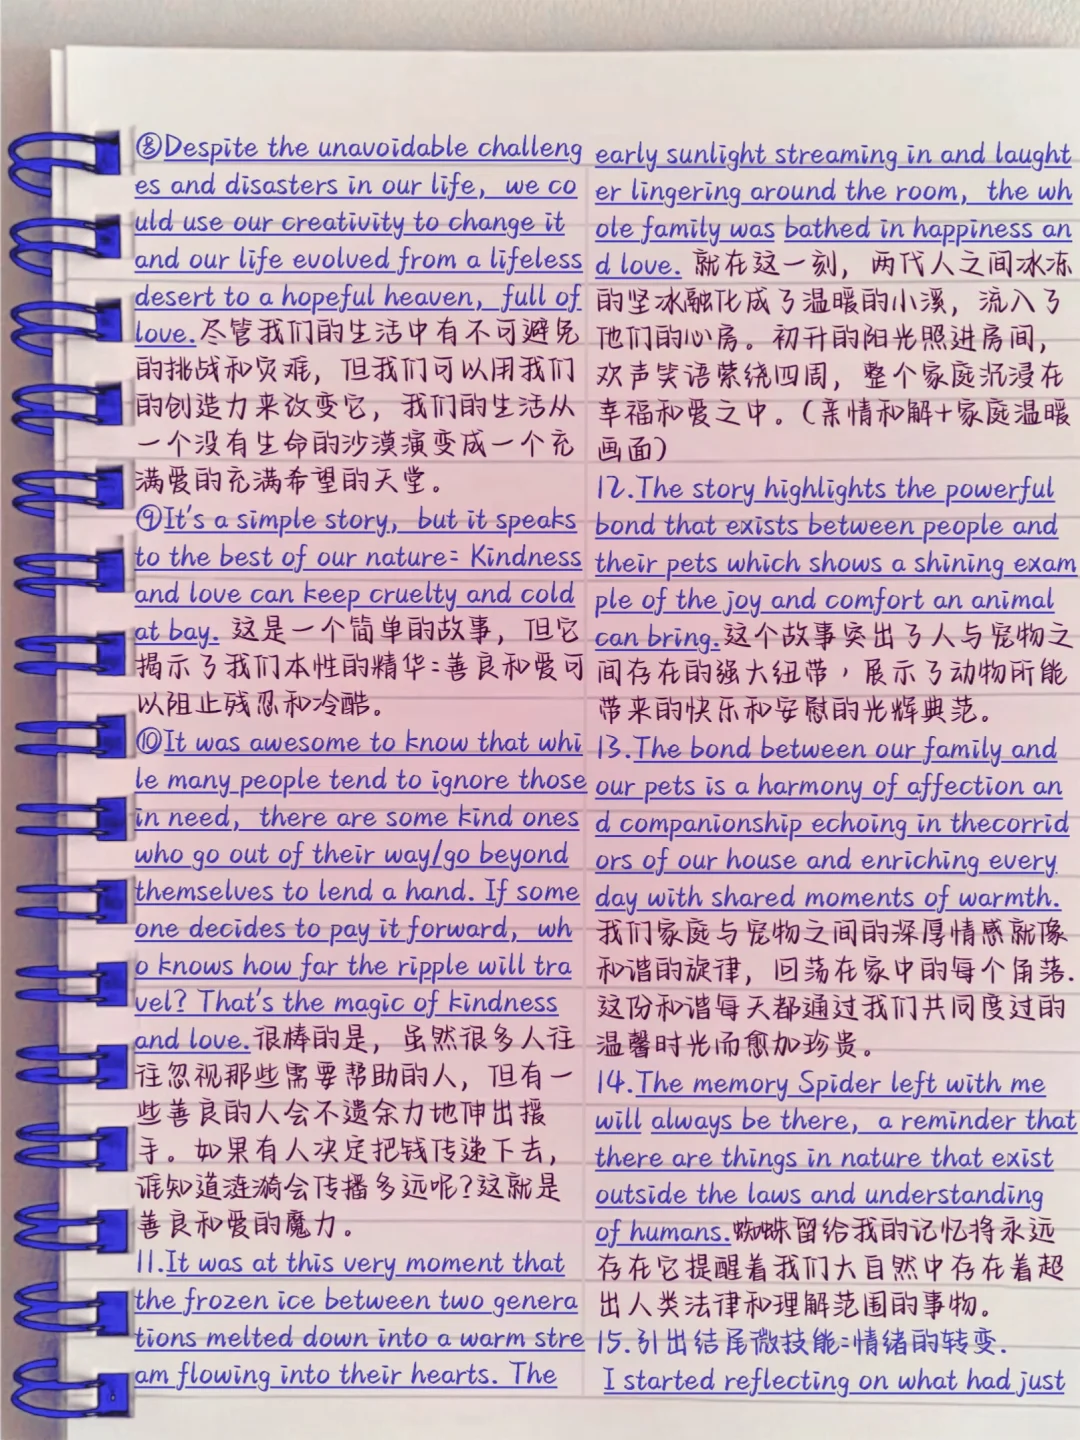 ⑧Despite the unavoidable challeng
es and disasters in our life, we co
uld use our creativity to change it
and our life evolved from a lifeless
desert to a hopeful heaven, full of
love.尽管我们的生活中有不可避免
的挑战和灾难，但我们可以用我们
的创造力来改变它，我们的生活从
一个没有生命的沙漠演变成一个充
满爱的充满希望的天堂。
⑨It's a simple story, but it speaks
to the best of our nature: Kindness
and love can keep cruelty and cold
at bay. 这是一个简单的故事，但它
揭示了我们本性的精华:善良和爱可
以阻止残忍和冷酷。
⑩It was awesome to know that whi
le many people tend to ignore those
in need, there are some kind ones
who go out of their way/go beyond
themselves to lend a hand. If some
one decides to pay it forward, wh
o knows how far the ripple will tra
vel? That's the magic of kindness
and love.很棒的是，虽然很多人往
往忽视那些需要帮助的人，但有一
些善良的人会不遗余力地伸出援
手。如果有人决定把钱传递下去，
谁知道涟漪会传播多远呢?这就是
善良和爱的魔力。
11.It was at this very moment that
the frozen ice between two genera
tions melted down into a warm stre
am flowing into their hearts. The
early sunlight streaming in and laught
er lingering around the room, the wh
ole family was bathed in happiness an
d love. 就在这一刻，两代人之间冰冻
的坚冰融化成了温暖的小溪，流入了
他们的心房。初升的阳光照进房间，
欢声笑语萦绕四周，整个家庭沉浸在
幸福和爱之中。(亲情和解+家庭温暖
画面)
12.The story highlights the powerful
bond that exists between people and
their pets which shows a shining exam
ple of the joy and comfort an animal
can bring.这个故事突出了人与宠物之
间存在的强大纽带，展示了动物所能
带来的快乐和安慰的光辉典范。
13.The bond between our family and
our pets is a harmony of affection an
d companionship echoing in thecorrid
ors of our house and enriching every
day with shared moments of warmth.
我们家庭与宠物之间的深厚情感就像
和谐的旋律，回荡在家中的每个角落.
这份和谐每天都通过我们共同度过的
温馨时光而愈加珍贵。
14.The memory Spider left with me
will always be there, a reminder that
there are things in nature that exist
outside the laws and understanding
of humans.蜘蛛留给我的记忆将永远
存在它提醒着我们大自然中存在着超
出人类法律和理解范围的事物。
15.引出结尾微技能:情绪的转变.
I started reflecting on what had just